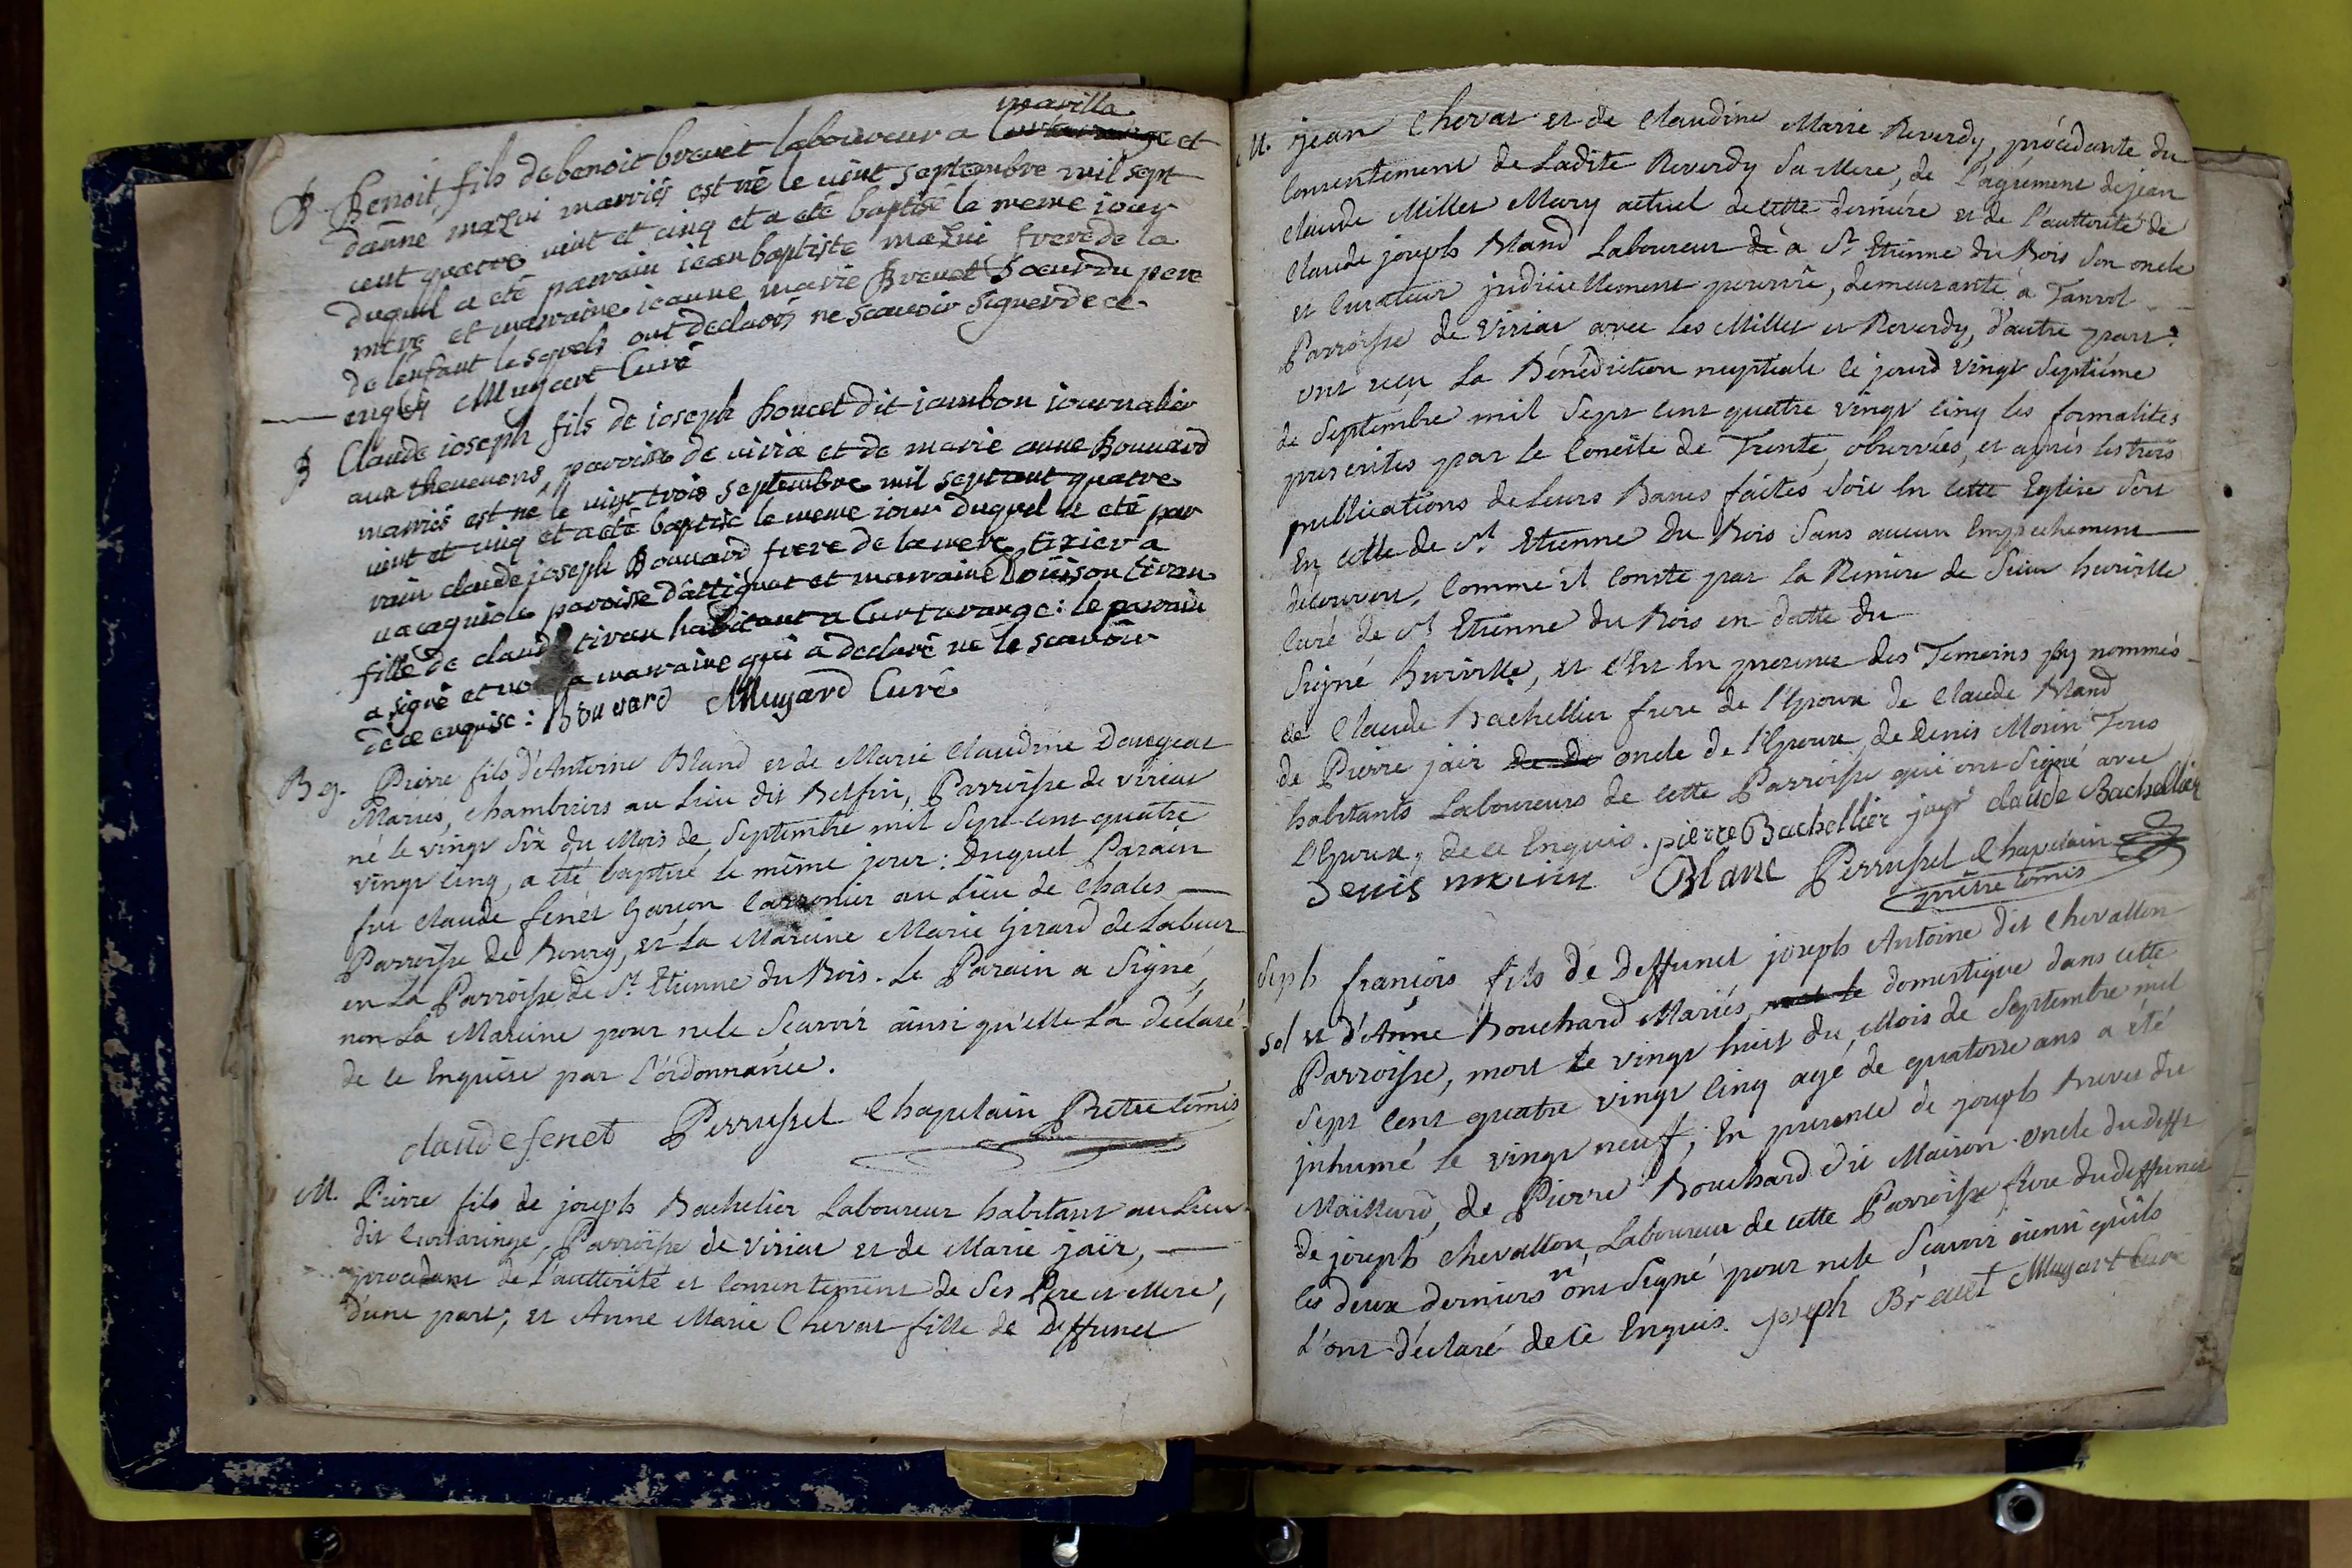 B Benoit fils de benoit brevet laboureur a marilla et
d'anne mazui marriés est né le vint septembre mil sept
cent quatre vint et cinq et a eté baptisé le meme jour
duquel a eté parrain jean baptiste mazui frere de la
mere et marraine jeanne marie Brevet soeur du pere
de lenfant lesquels ont declarés ne scavoir signer de ce
enquis Mugart Curé
B Claude joseph fils de joseph poncet dit jambon journalier
aux thevenons parroisse de viria et de marie anne Bouvard
marriés est né le vint trois septembre mil sept cent quatre
vint et cinq et a eté baptisé le meme jour duquel a eté par
rain claude joseph Bouvard frere de la mere tixier a
la cagniole paroisse d'attignat et marraine Louison tivan
fille de claude tivan habitant a Curtarange: le parrain
a signé et no la marraine qui a declaré ne le scavoir
de ce enquise: Bouvard Mugard Curé
B g. Pierre fils d'Antoine Bland et de Marie Claudine Dangeat
Mariés, Chambriers au Lieu dit Belfin, Parroisse de viriat
né le vingt Six du Mois de Septembre mil Sept-Cent quatre
vingt Cinq, a été baptisé le même jour: Duquel Parain
fut Claude fenet Garçon Carronier au Lieu de Chales
Parroisse de Bourg, et La Mareine Marie Girard de Labeur
en La Parroisse de St. Etienne du Bois. Le Parain a Signé,
non La Mareine pour ne le Sçavoir ainsi qu'elle La déclaré
de ce Enquise par L'ordonnance.
claude fenet Perrussel Chapelain Prêtre Comis
M. Pierre fils de joseph Bachelier Laboureur habitant au Lieu
dit Curtaringe, Parroisse de Viriat et de Marie jaïr,
procedant de L'autorité et Consentement de Ses Pere et Mere,
d'une part; et Anne Marie Chevat fille de Deffunct
M. jean Chevat et de Claudine Marie Reverdy, procédante du
Consentement de Ladite Reverdy Sa Mere, de L'agrément de jean
Claude Millet Mary actuel de cette derniére et de L'authorité de
Claude joseph Bland Laboureur de a St. Etienne du Bois Son oncle
et Curateur judiciellement pourvû, demeurante à Tanvol
Parroisse de Viriat avec Les Millet et Reverdy, d'autre part:
ont reçu La Bénédiction nuptiale le jourd vingt Septiéme
de Septembre mil Sept Cent quattre vingt Cinq les formalités
prescrites par le Concile de Trente, observées, et aprés les trois
publications de Leurs Bancs faites Soit En cette Eglise Soit
En celle de St Etienne Du Bois Sans aucun Empechement
découvert, Comme il Conste par La Remise de Sieur huriville
Curé de St Etienne du Bois en datte du
Signé huriville, et C'est En presence des Temoins cy nommés
de Claude Bachellier frere de l'Epoux de Claude Bland
de Pierre jair de de oncle de l'Epoux, de Denis Morin Tous
habitants Laboureurs de cette Parroisse qui ont Signé avec
L'Epoux, de ce Enquis. pierre Bachellier jayr claude Bachellier
Denis morin Blanc Perrussel Chapelain
prêtre Comis
Sep h françois fils de Deffunct joseph Antoine dit Chevallon
sol et d'Anne Bouchard Mariés, domestique dans cette
Parroisse, mort le vingt huit du Mois de Septembre mil
Sept Cent quatre vingt Cinq agé de quatorse ans a été
jnhumé le vingt neuf; En presence de joseph Brevet du
Maillard, de Pierre Bouchard dit Maison oncle du defft
de joseph Chevallon, Laboureur de cette Parroisse frere du deffunct
les deux derniers n'ont Signé pour ne le Sçavoir ainsi qu'ils
L'ont déclaré de ce Enquis. joseph Brevet Mugart Curé